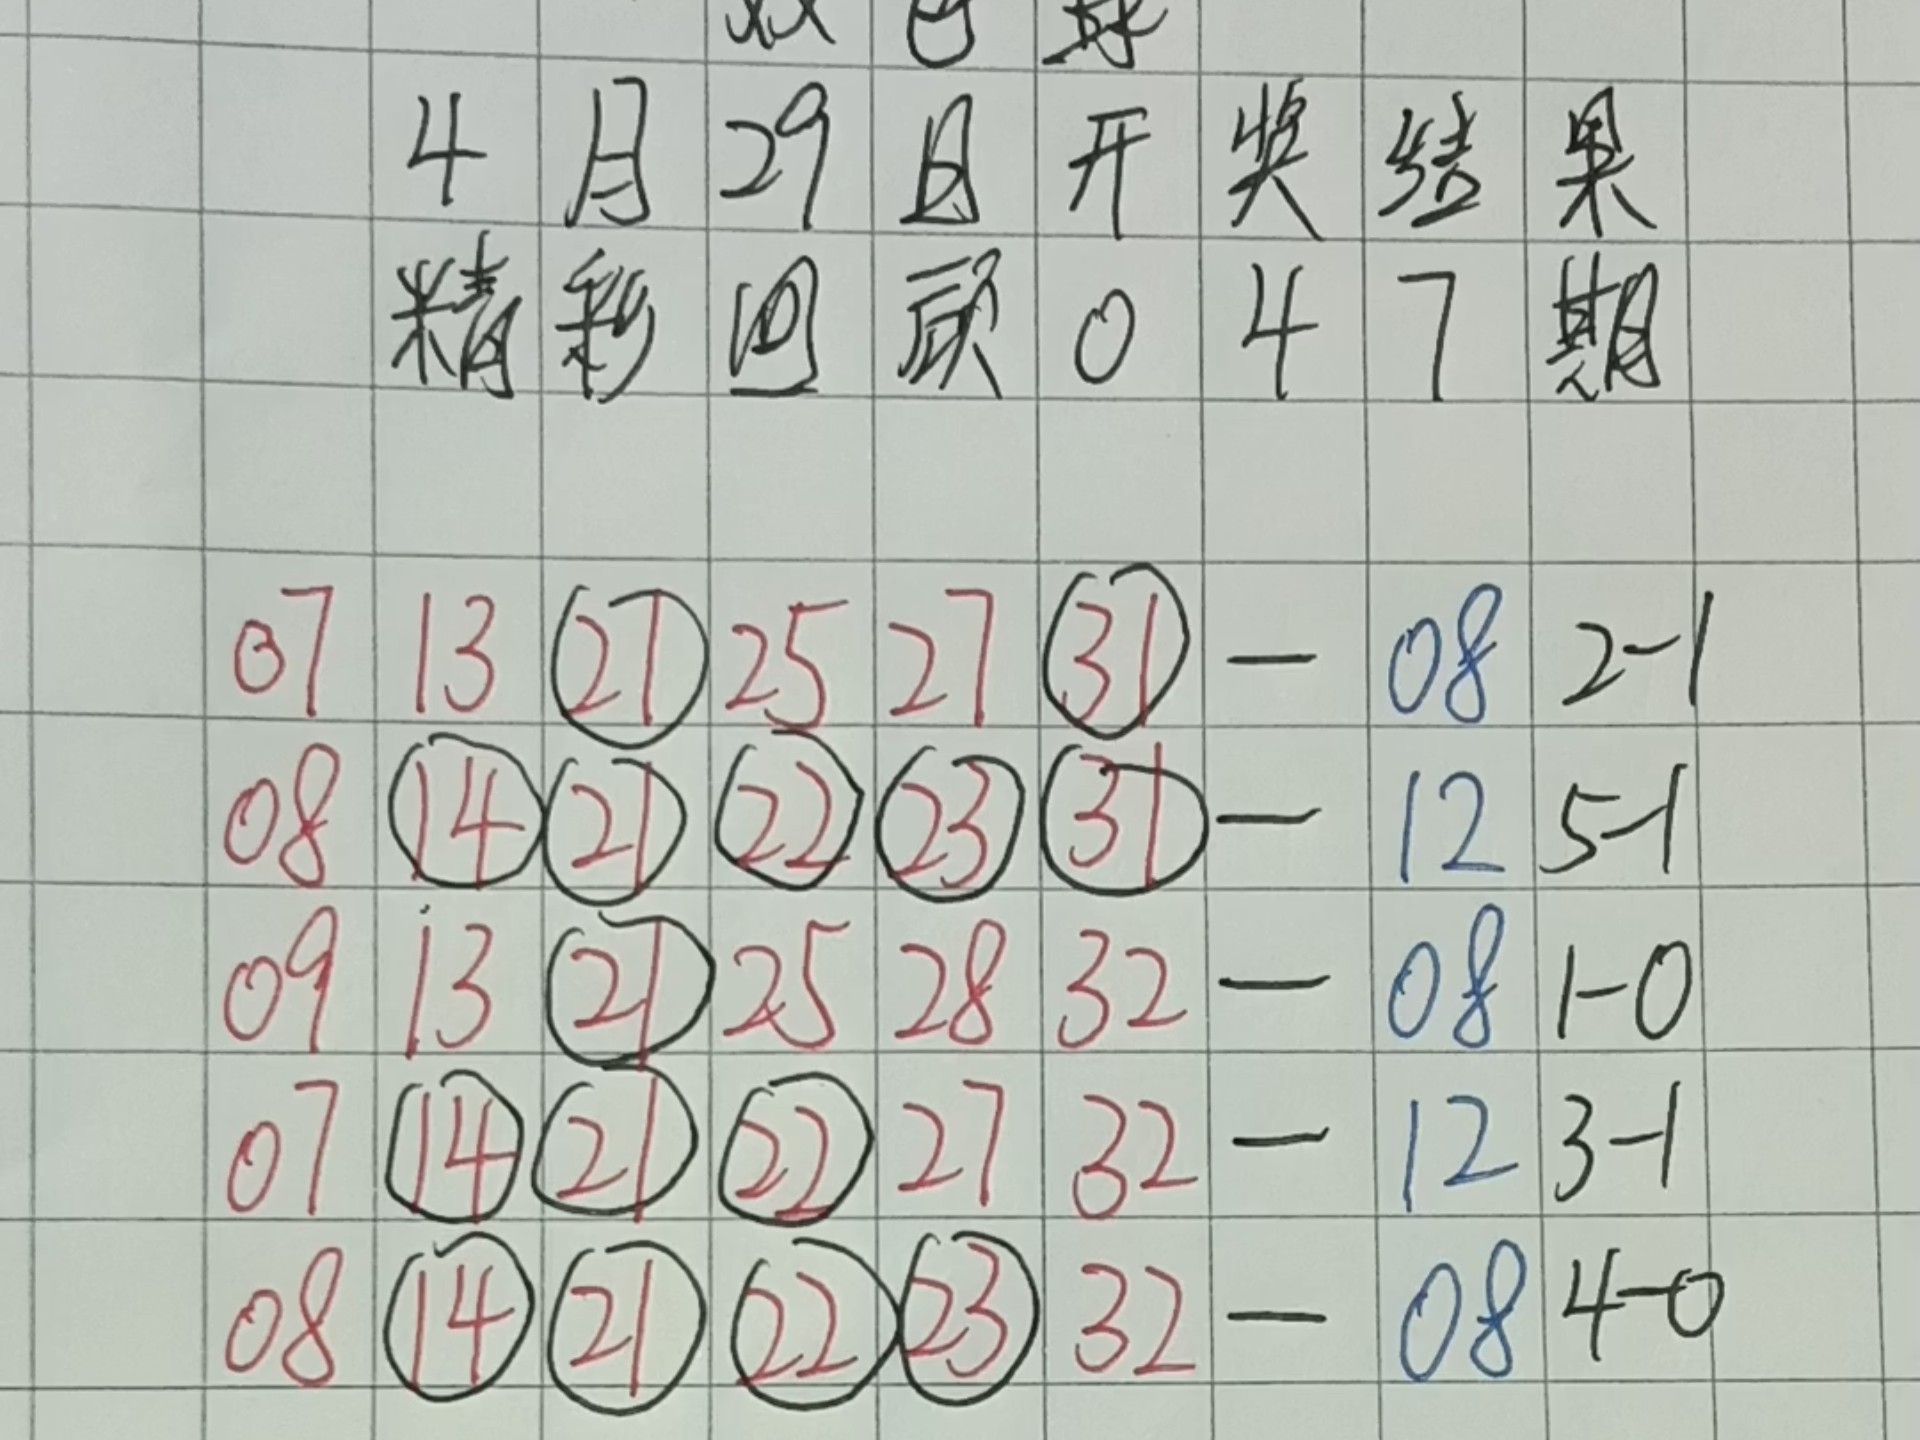 双色球
4月29日开奖结果
精彩回顾047期
07 13 21 25 27 31 — 08 2-1
08 14 21 22 23 31 — 12 5-1
09 13 21 25 28 32 — 08 1-0
07 14 21 22 27 32 — 12 3-1
08 14 21 22 23 32 — 08 4-0